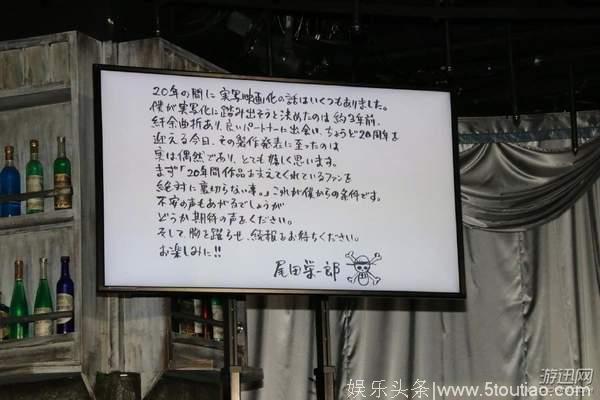 20年の間に実写映画化の話はいくつもありました。
僕が実写化に踏み出そうと決めたのは約3年前、
紆余曲折あり、良いパートナーと出会い、ちょうど20周年を
迎える今日、その製作発表に至ったのは
実は偶然であり、とても嬉しく思います。
まず「20年間作品を支えてくれているファンを
絶対に裏切らない事。」これが僕からの条件です。
不安の声もあがるでしょうが
どうか期待の声をください。
そして胸を躍らせ、続報をお待ちください。
お楽しみに!!
尾田栄一郎
游迅网
娱乐头条/www.5toutiao.com